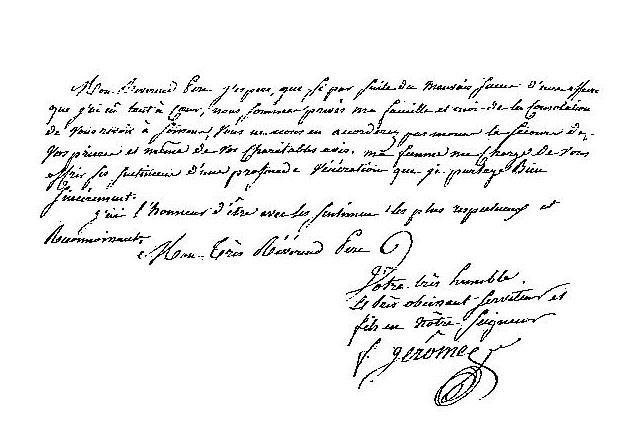 Mon Révérend Pere j'espere, que, si par suite du mauvais succe d'une affaire
que j'ai eû tout à Cœur, nous sommes privés ma famille et moi de la Consolation
de vous revoir à vous ne nous en accorderez pas moins le secours de
vos prieres et même de vos Charitables avis. ma femme me Charge de vous
offrir ses sentimens d'une profonde Vénération que je partage Bien
Sincèrement.
j'ai l'honneur d'être avec les sentimens les plus respectueux et
Reconnoissants
Mon Très Révérend Pere
Votre très humble
et très obeissant serviteur et
fils en nôtre Seigneur
f. gerôme